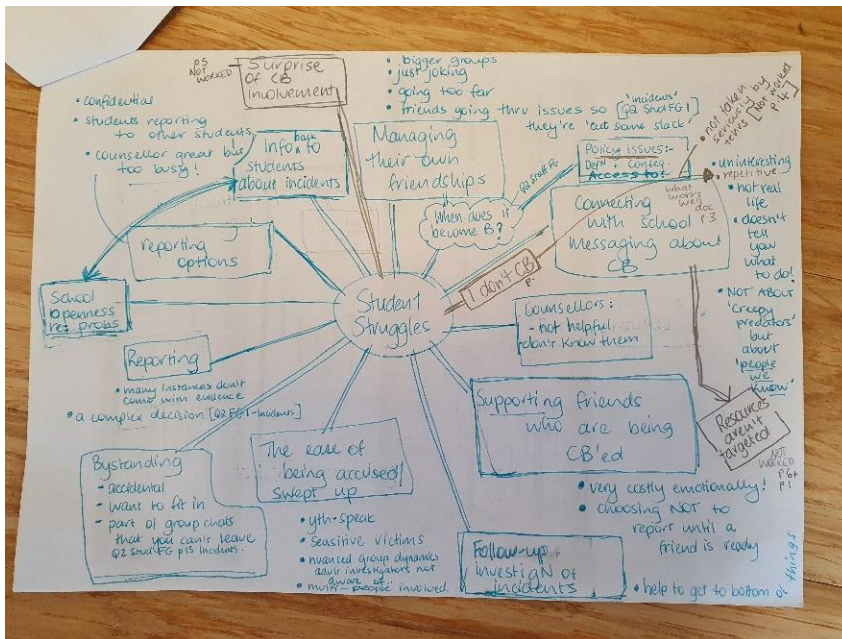 p5
NOT
WORKED
Surprise
of CB
involvement
• bigger groups
• just joking
• going too far
• friends going thru issues so
they're 'cut some slack'
'incidents'
[Q2 Stud FG 1]
• not taken
seriously by
[Not worked
p.4]
• confidential
• students reporting
to other students
• counsellor great but
too busy!
Info back to
students
about incidents
Managing
their own
friendships
Policy issues:-
Access to?
Q2 Staff FG
When does it
become B?
Connecting
with school
messaging about
CB
what
works
well
doc
p.3
• uninteresting
• repetitive
• not real
life
• doesn't
tell
you
what
to do!
• NOT ABOUT
'creepy
predators'
but
about
'people
we
know'
reporting
options
I don't CB
p.
School
openness
re: probs
Student
Struggles
Counsellors:
- not helpful
don't know them
Reporting
• many instances don't
come with evidence
• a complex decision [Q2 FG1-Incidents]
Supporting friends
who are being
CB'ed
Resources
aren't
targeted
NOT
WORKED
p6+
p1
Bystanding
- accidental
- want to fit in
- part of group chats
that you can't leave
Q2 Stud FG p15 Incidents.
The ease of
being accused/
swept up
• yth-speak
• sensitive victims
• nuanced group dynamics
adult investigators not
aware of...
• multi-people involved.
• very costly emotionally!
• choosing NOT to
report until a
friend is ready
Follow-up +
InvestigN of
incidents
• help to get to bottom of
things